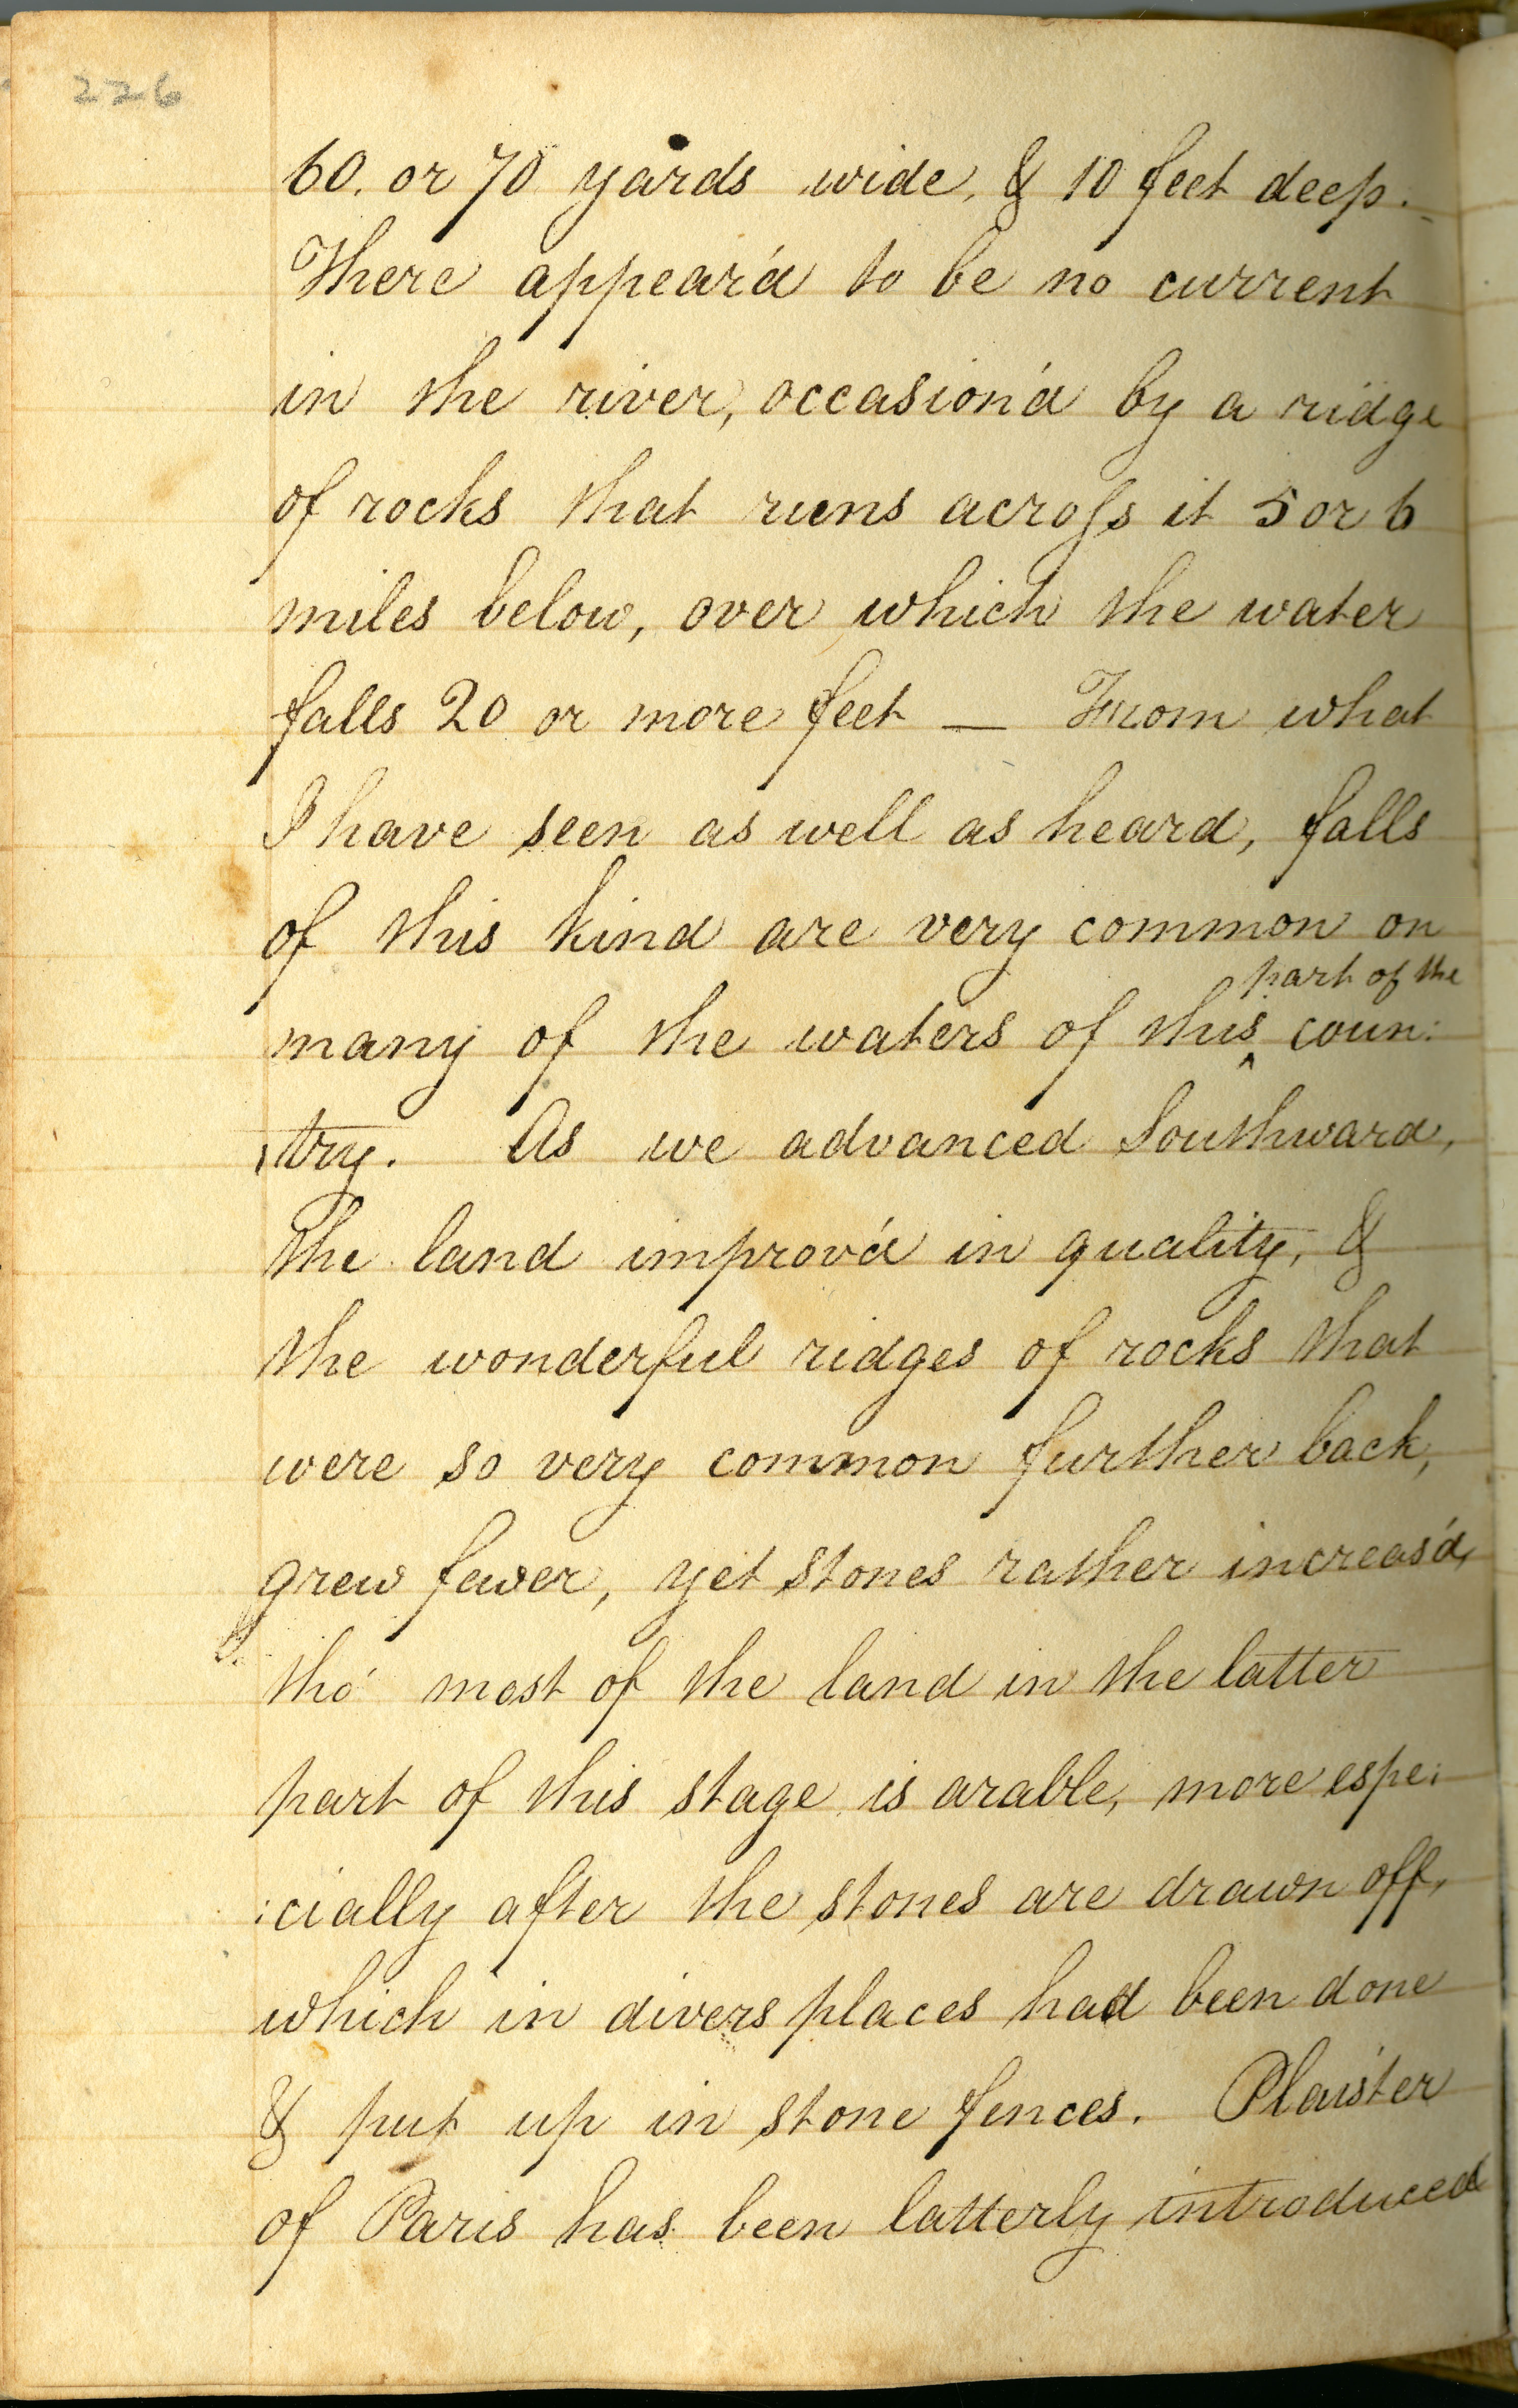 226
60. or 70 yards wide, & 10 feet deep.
There appear'd to be no current
in the river, occasion'd by a ridge
of rocks that runs across it 5 or 6
miles below, over which the water
falls 20 or more feet — From what
I have seen as well as heard, falls
of this kind are very common on
part of the
many of the waters of this ^ coun:
:try. As we advanced Southward,
the land improv'd in quality, &
the wonderful ridges of rocks that
were so very common further back,
grew fewer, yet stones rather increas'd,
tho' most of the land in the latter
part of this stage is arable, more espe:
:cially after the stones are drawn off,
which in divers places had been done
& put up in stone fences. Plaister
of Paris has been latterly introduced